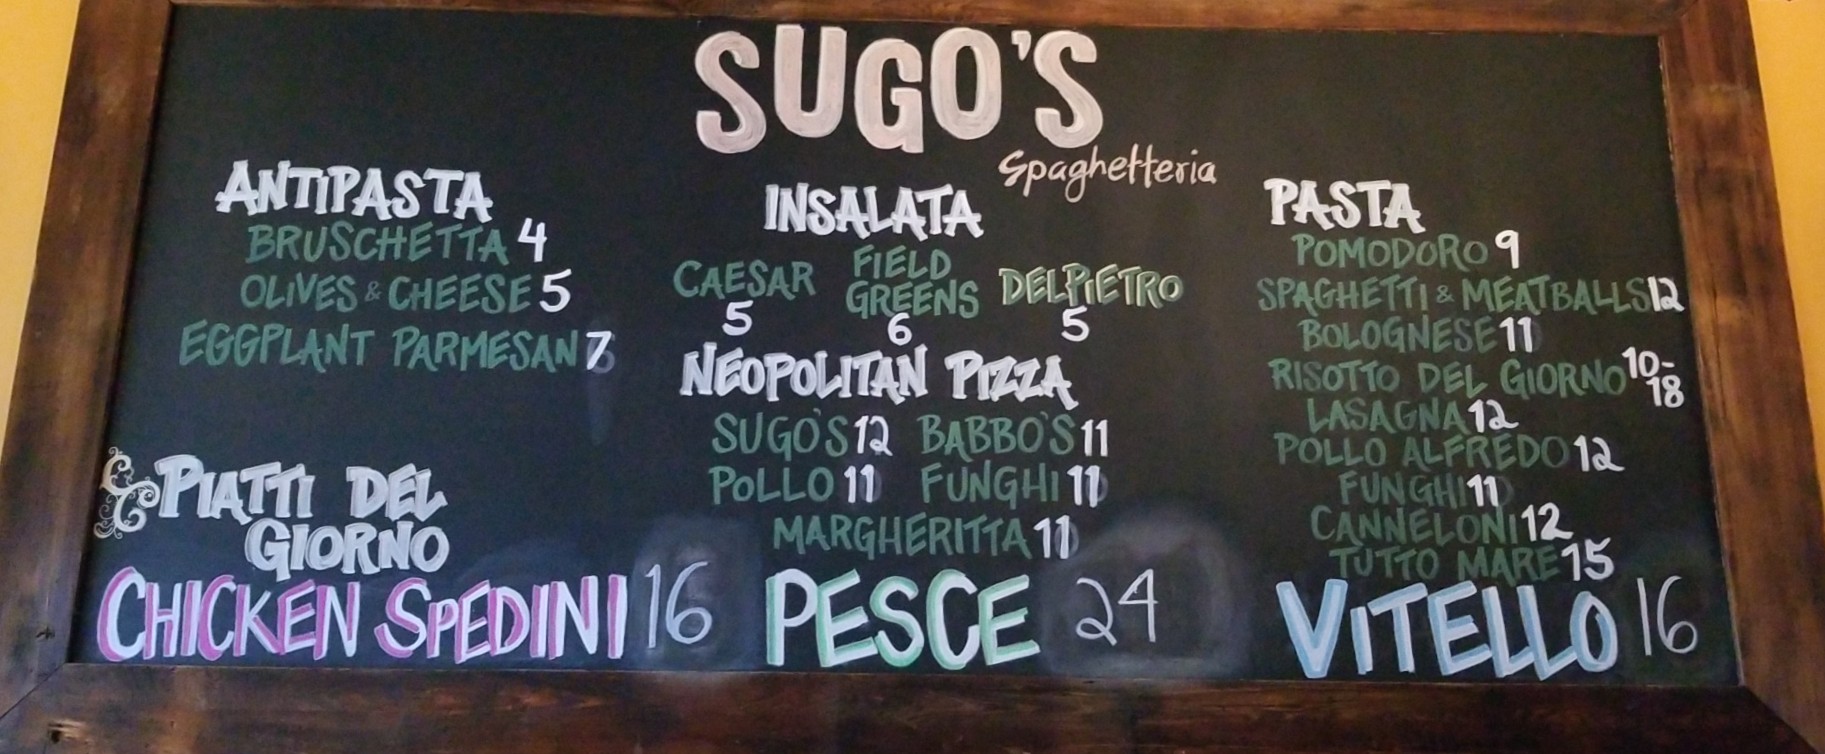 SUGO'S
Spaghetteria
ANTIPASTA
BRUSCHETTA 4
OLIVES & CHEESE 5
EGGPLANT PARMESAN 7
INSALATA
CAESAR
5
FIELD
GREENS
6
DELPIETRO
5
NEOPOLITAN PIZZA
SUGO'S 12 BABBO'S 11
POLLO 11 FUNGHI 11
MARGHERITTA 11
PASTA
POMODORO 9
SPAGHETTI & MEATBALLS 12
BOLOGNESE 11
RISOTTO DEL GIORNO 10-18
LASAGNA 12
POLLO ALFREDO 12
FUNGHI 11
CANNELONI 12
TUTTO MARE 15
PIATTI DEL
GIORNO
CHICKEN SPEDINI 16 PESCE 24 VITELLO 16